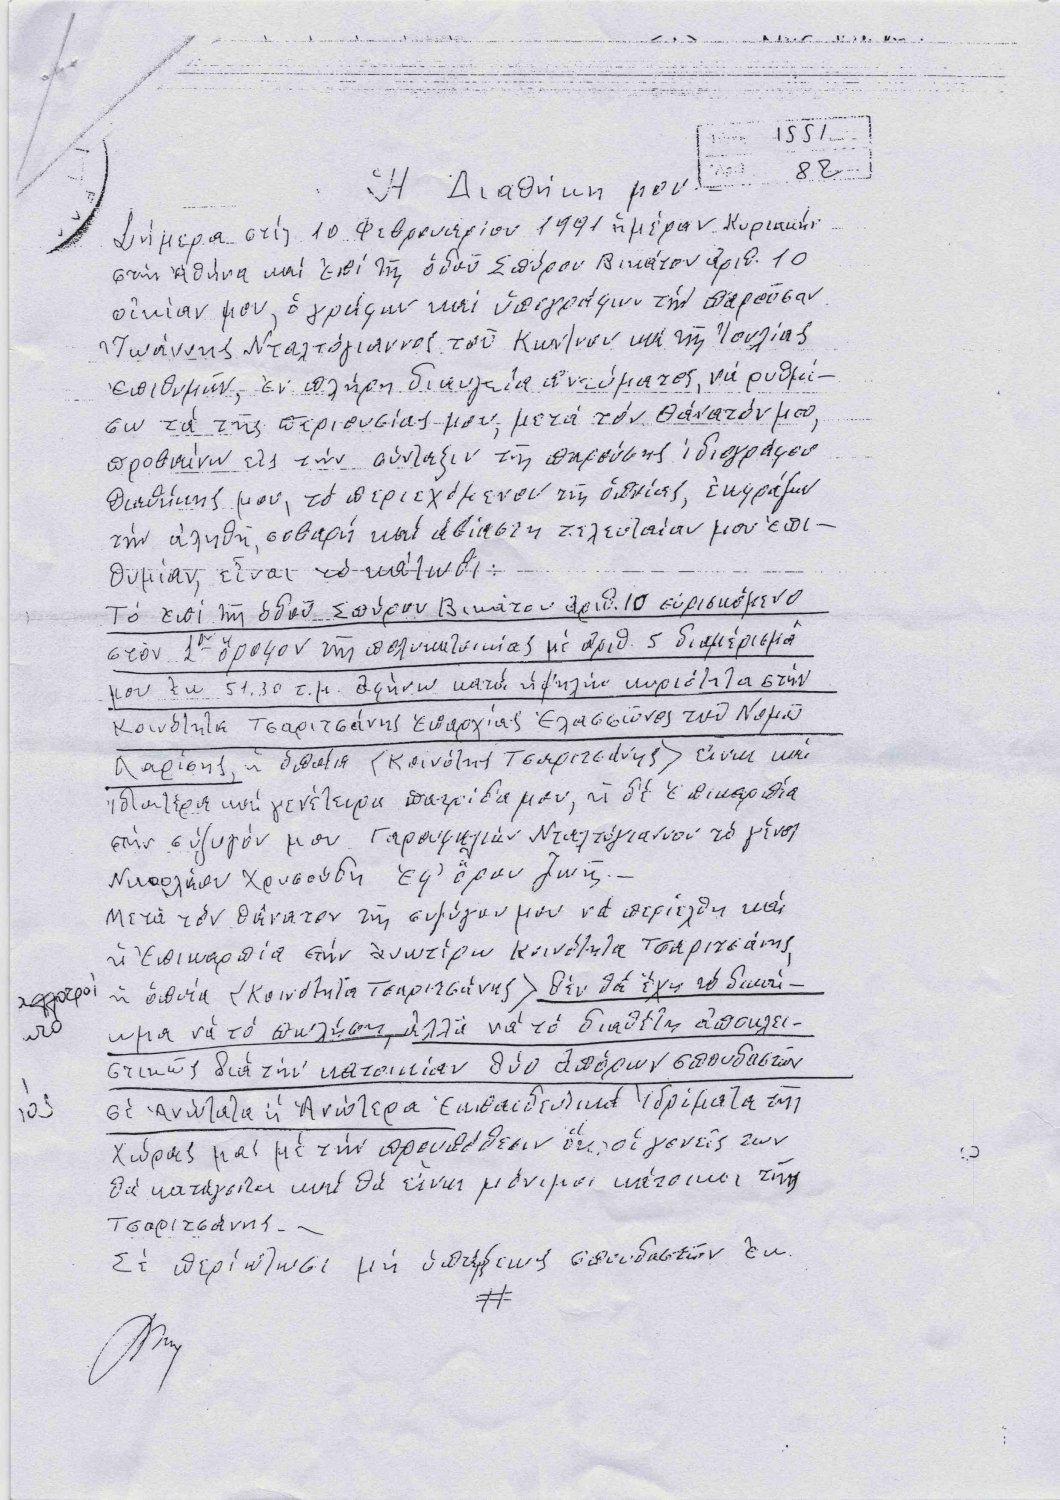 1551
82
Ἡ Διαθήκη μου
Σήμερα στίς 10 Φεβρουαρίου 1991 ἡμέραν Κυριακήν
στήν Ἀθήνα καί ἐπί τῆς ὁδοῦ Σπύρου Βικάτου ἀριθ. 10
οἰκίαν μου, ὁ γράφων καί ὑπογράφων τήν παροῦσαν
Ἰωάννης Νταλτόγιαννος τοῦ Κων/νου καί τῆς Ἰουλίας
ἐπιθυμῶν, ἐν πλήρη διαυγεία πνεύματος, νά ρυθμί-
σω τά τῆς περιουσίας μου, μετά τόν θάνατόν μου,
προβαίνω εἰς τήν σύνταξιν τῆς παρούσης ἰδιογράφου
διαθήκης μου, τό περιεχόμενον τῆς ὁποίας, ἐκφράζων
τήν ἀληθῆ, σοβαρή καί ἀβίαστη τελευταίαν μου ἐπι-
θυμίαν, εἶναι τό κάτωθι:
Τό ἐπί τῆς ὁδοῦ Σπύρου Βικάτου ἀριθ. 10 εὑρισκόμενο
στόν 1ον ὄροφον τῆς πολυκατοικίας μέ ἀριθ. 5 διαμέρισμά
μου ἐκ 51.30 τ.μ. ἀφήνω κατά ψιλήν κυριότητα στήν
Κοινότητα Τσαριτσάνης ἐπαρχίας Ἐλασσῶνος τοῦ Νομοῦ
Λαρίσης, ἡ ὁποία <Κοινότης Τσαριτσάνης> εἶναι καί
ἰδιαιτέρα καί γενέτειρα πατρίδα μου, ἡ δέ ἐπικαρπία
στήν σύζυγόν μου Γαρουφαλιάν Νταλτόγιαννου τό γένος
Νικολάου Χρυσούδη ἐφ' ὅρου ζωῆς.-
Μετά τόν θάνατον τῆς συζύγου μου νά περιέλθη καί
ἡ ἐπικαρπία στήν ἀνωτέρω Κοινότητα Τσαριτσάνης,
ἡ ὁποία <Κοινότητα Τσαριτσάνης> δέν θά ἔχη τό δικαί-
ωμα νά τό πωλήση, ἀλλά νά τό διαθέτη ἀποκλει-
στικῶς διά τήν κατοικίαν δύο ἀπόρων σπουδαστῶν
σέ Ἀνώτατα ἤ Ἀνώτερα Ἐκπαιδευτικά Ἱδρύματα τῆς
Χώρας μας μέ τήν προϋπόθεσιν ὅτι οἱ γονεῖς των
θά κατάγονται καί θά εἶναι μόνιμοι κάτοικοι τῆς
Τσαριτσάνης.-
Σέ περίπτωσι μή ὑπάρξεως σπουδαστῶν ἐκ
#